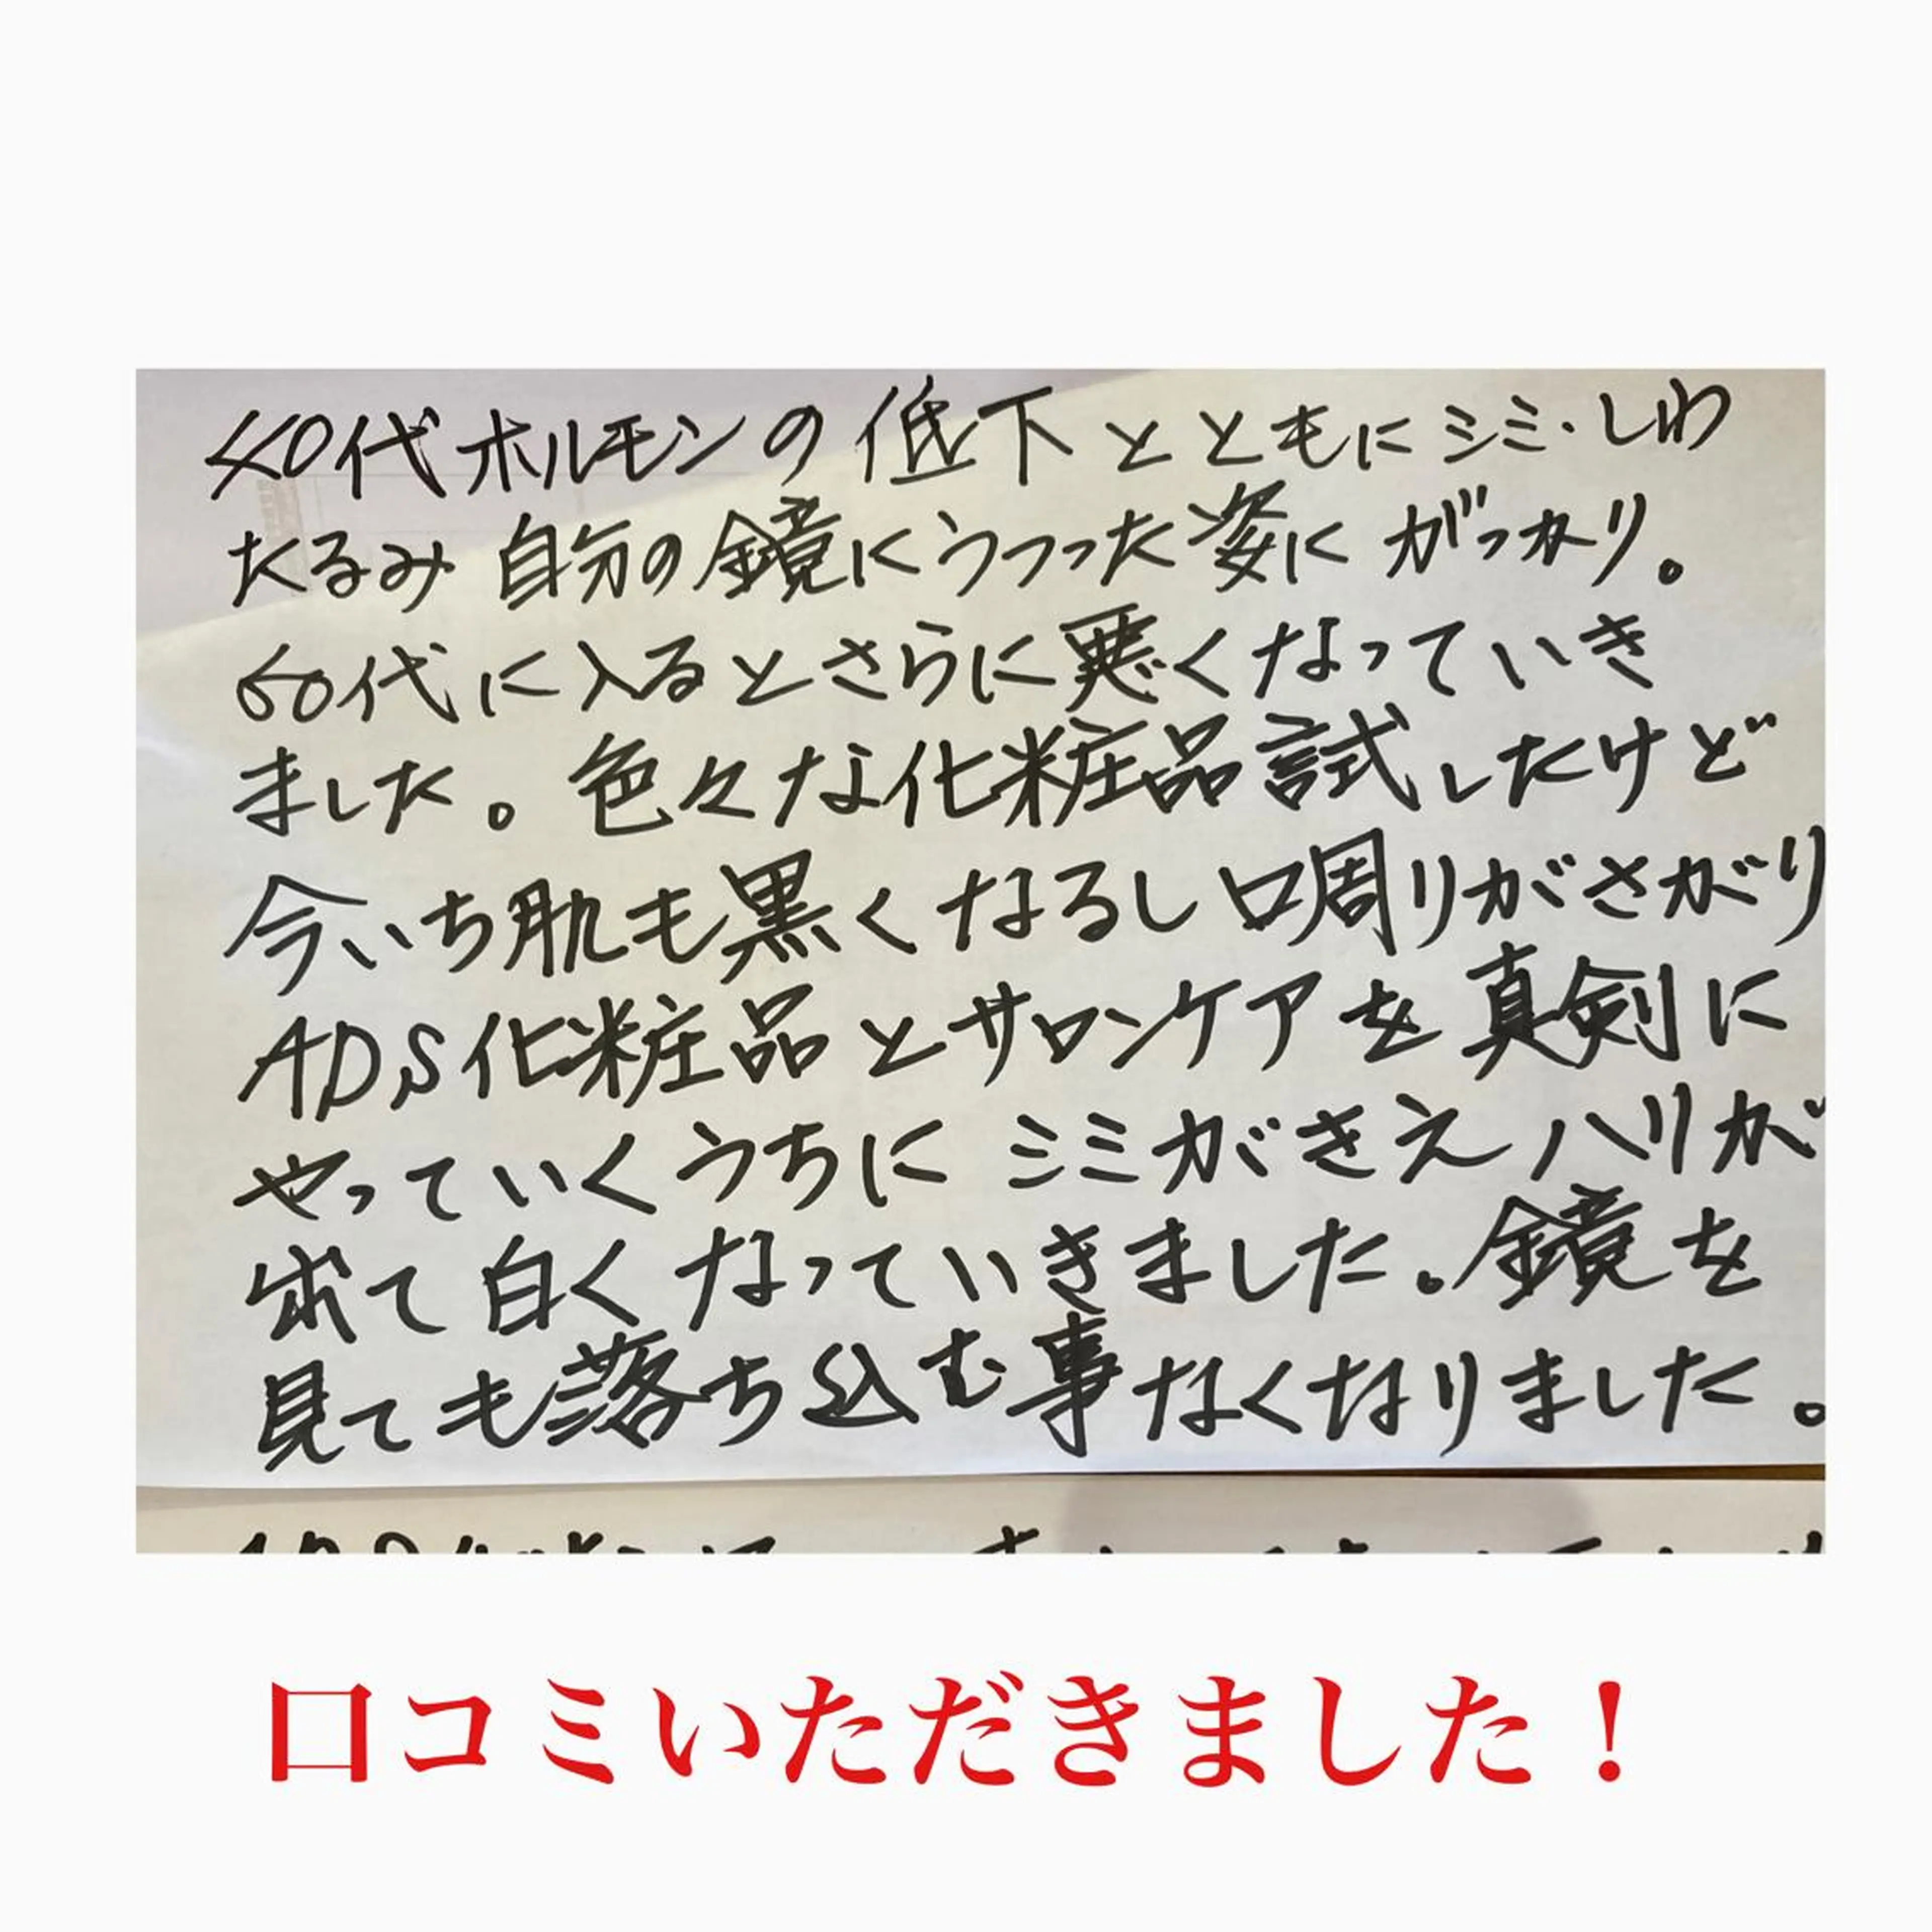 40代ホルモンの低下とともにシミ・しわ
たるみ 自分の鏡にうつった姿にがっかり。
60代に入るとさらに悪くなっていき
ました。色々な化粧品試したけど
今いち肌も黒くなるし口周りがさがり
ADS化粧品とサロンケアを真剣に
やっていくうちに シミがきえハリが
出て白くなっていきました。鏡を
見ても落ち込む事なくなりました。
口コミいただきました！